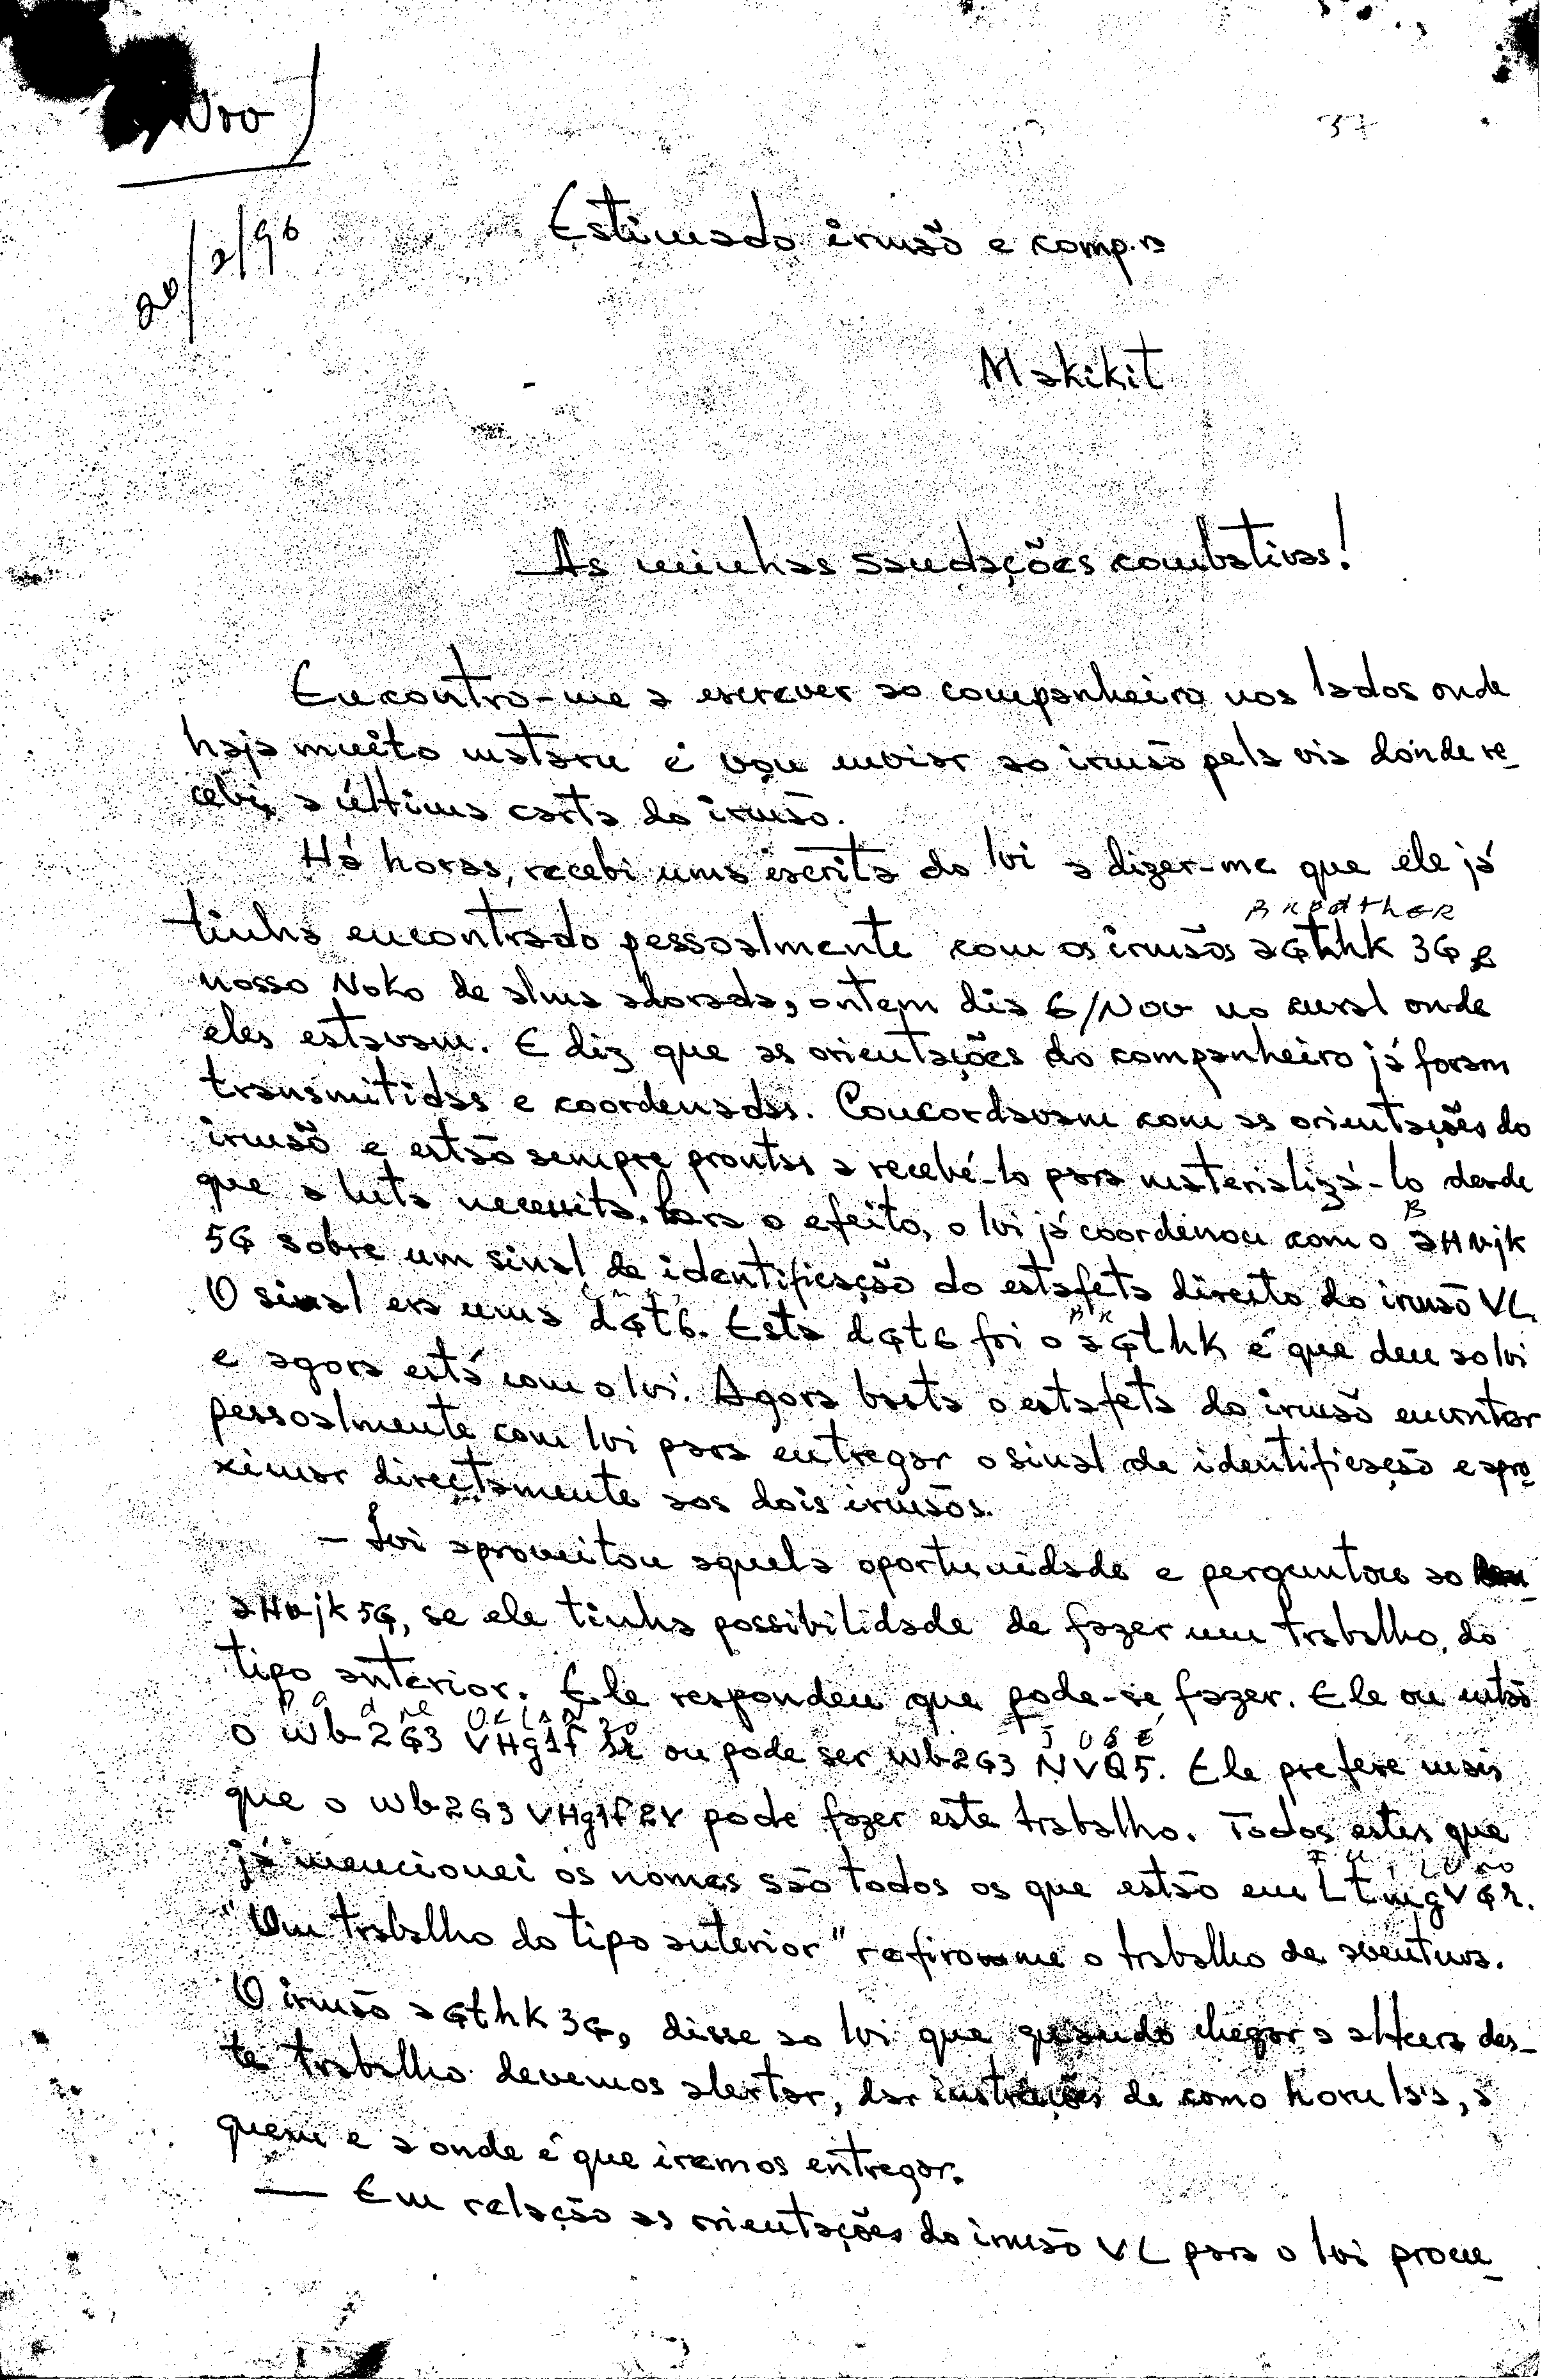 37
20/2/96
Estimado irmão e comp.ra
Makikit
As minhas saudações combativas!
Encontro-me a escrever ao companheiro nos lados onde
haja muito mataru e vou enviar ao irmão pela via donde re_
cebi, a última carta do irmão.
Há horas, recebi uma escrita do loi a dizer-me que ele já
tinha encontrado pessoalmente com os irmãos aGthhk 3G e
nosso Noko de alma adorada, ontem dia 6/Nov no cural onde
eles estavam. E diz que as orientações do companheiro já foram
transmitidas e coordenadas. Concordavam com as orientações do
irmão e estão sempre prontos a recebé-lo para materializá-lo desde
B
que a luta necessita. Para o efeito, o loi já coordenou com o aHnjk
5G sobre um sinal de identificação do estafeta direito do irmão VL.
O sinal era uma dGt6. Esta dGt6 foi o aGthk é que deu ao loi
e agora está com o loi. Agora basta o estafeta do irmão encontar
pessoalmente com loi para entregar o sinal de identificação e apro_
ximar directamente aos dois irmãos.
- Loi aproveitou aquela oportunidade e perguntou ao
aHnjk 5G, se ele tinha possibilidade de fazer um trabalho, do
tipo anterior. Ele respondeu que pode-se fazer. Ele ou então
J O S E
o wb2G3 VHg1f ou pode ser wb2G3 NVQ5. Ele prefere mais
que o wb2G3 VHg1f2r pode fazer este trabalho. Todos estes que
já mencionei os nomes são todos os que estão em LtmgVGr.
"Um trabalho do tipo anterior" refiro-me o trabalho de aventura.
O irmão aGthk 3G, disse ao loi que quando chegar a altura des_
te trabalho devemos alertar, dar instruções de como horu la's, a
quem e a onde é que iremos entregar.
— Em relação as orientações do irmão VL para o loi procu_